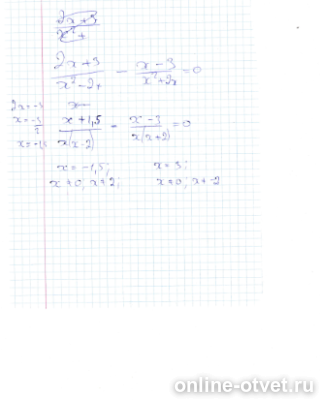 2x+3
x² +
2x+3 / x²-2x - x-3 / x²+2x = 0
2x=-3
x=-3
x+1,5 / x(x-2) - x-3 / x(x+2) = 0
x=-1,5
x=-1,5; x=3;
x≠0; x≠2; x≠0; x≠-2
online-otvet.ru